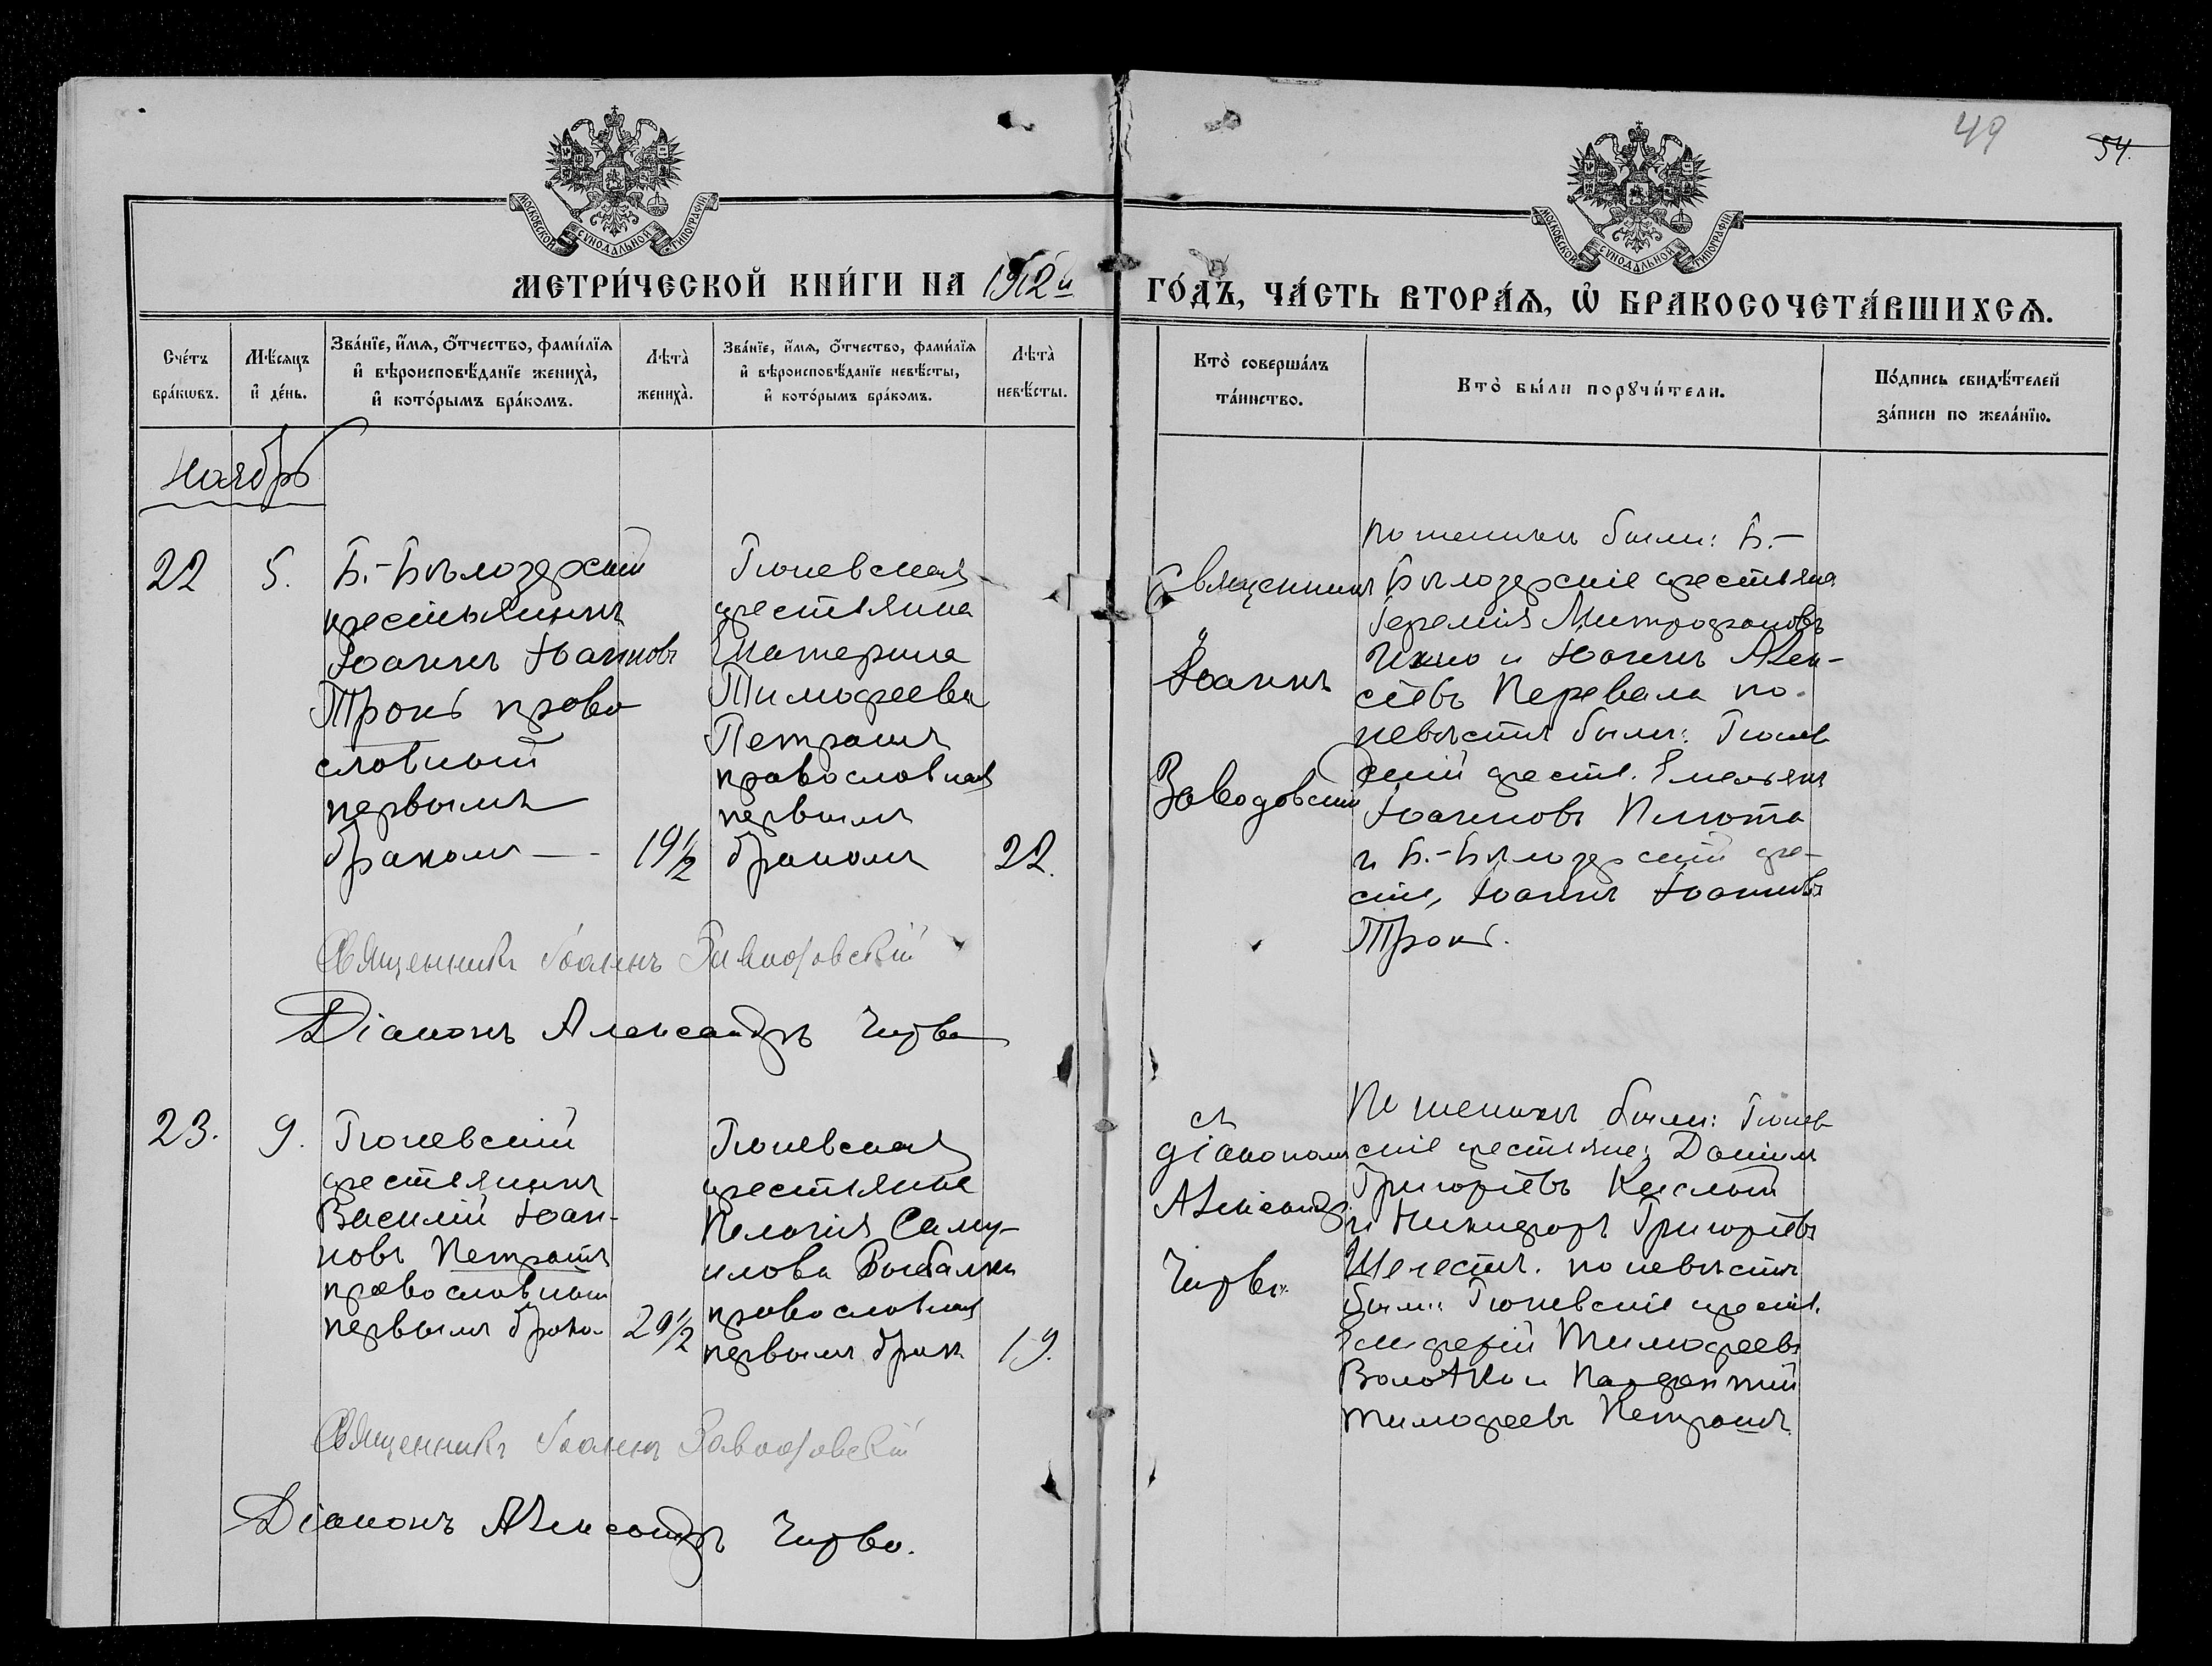 49
54.
МОСКОВСКОЙ СУНОДАЛЬНОЙ ТИПОГРАФІИ
МОСКОВСКОЙ СУНОДАЛЬНОЙ ТИПОГРАФІИ
МЕТРИ́ЧЕСКОЙ КНИ́ГИ НА 1912й
ГО́ДЪ, ЧА́СТЬ ВТОРА́Ѧ, Ѽ БРАКОСОЧЕТА́ВШИХСѦ.
Сче́тъ
бра́кѡвъ.
Мѣ́сѧцъ
и҆ де́нь.
Зва́нїе, и҆́мѧ, ѻ҆́тчество, фами́лїѧ
и҆ вѣроисповѣ́данїе жениха̀,
и҆ кото́рымъ бра́комъ.
Лѣта̀
жениха̀.
Зва́нїе, и҆́мѧ, ѻ҆́тчество, фами́лїѧ
и҆ вѣроисповѣ́данїе невѣ́сты,
и҆ кото́рымъ бра́комъ.
Лѣта̀
невѣ́сты.
Кто̀ соверша́лъ
та́инство.
Кто̀ бы́ли порꙋчи́тели.
По́дпись свидѣ́телей
за́писи по жела́нїю.
Ноябрь
22
5.
Б.-Бѣлозерскій
крестьянинъ
Іоаннъ Іоанновъ
Тронь право
славный
первымъ
бракомъ
19½
Гюневская
крестьянка
Екатерина
Тимофеева
Петрашъ
православная
первымъ
бракомъ
22.
Священникъ
Іоаннъ
Заводовскій
по женихѣ были: Б.-
Бѣлозерскіе крестьяне
Іеремія Митрофановъ
и Іоаннъ Алек-
сѣевъ Перевала по
невѣстѣ были: Гюнев
скій крест. Емельянъ
Іоанновъ
и Б.-Бѣлозерскій кре-
ст., Іоаннъ Іоанновъ
Тронь.
Священникъ Іоаннъ Заводовскій
Діаконъ Александръ Чирва
23.
9.
Гюневскій
крестьянинъ
Василій Іоан-
новъ Петрашъ
православный
первымъ брако.
29½
Гюневская
крестьянка
Пелагія Саму-
илова Рыбалка
православная
первымъ брак
19.
съ
діакономъ
Александр.
Чирва.
По женихѣ были: Гюнев
скіе крестьяне: Даніилъ
Григоріевъ Кислый
и Никифоръ Григоріевъ
Шелестъ. по невѣстѣ
были: Гюневскіе крест.
Тимофеевъ
и Парфентій
Тимофеевъ Петрашъ.
Священникъ Іоаннъ Заводовскій
Діаконъ Александръ Чирва.